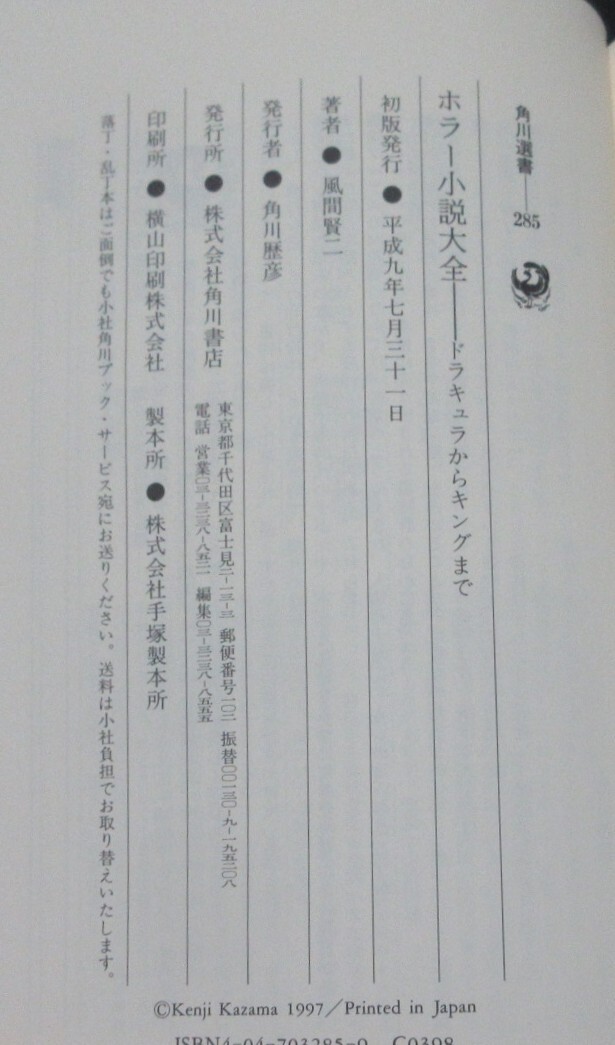 角川選書——285
ホラー小説大全——ドラキュラからキングまで
初版発行●平成九年七月三十一日
著者●風間賢二
発行者●角川歴彦
発行所●株式会社角川書店
東京都千代田区富士見二-一三-三 郵便番号一〇二 振替〇〇一三〇-九-一九五二〇八
電話 営業〇三-三二三八-八五二一 編集〇三-三二三八-八五五五
印刷所●横山印刷株式会社 製本所●株式会社手塚製本所
落丁・乱丁本はご面倒でも小社角川ブック・サービス宛にお送りください。送料は小社負担でお取り替えいたします。
©Kenji Kazama 1997／Printed in Japan
ISBN4-04-703285-0 C0398